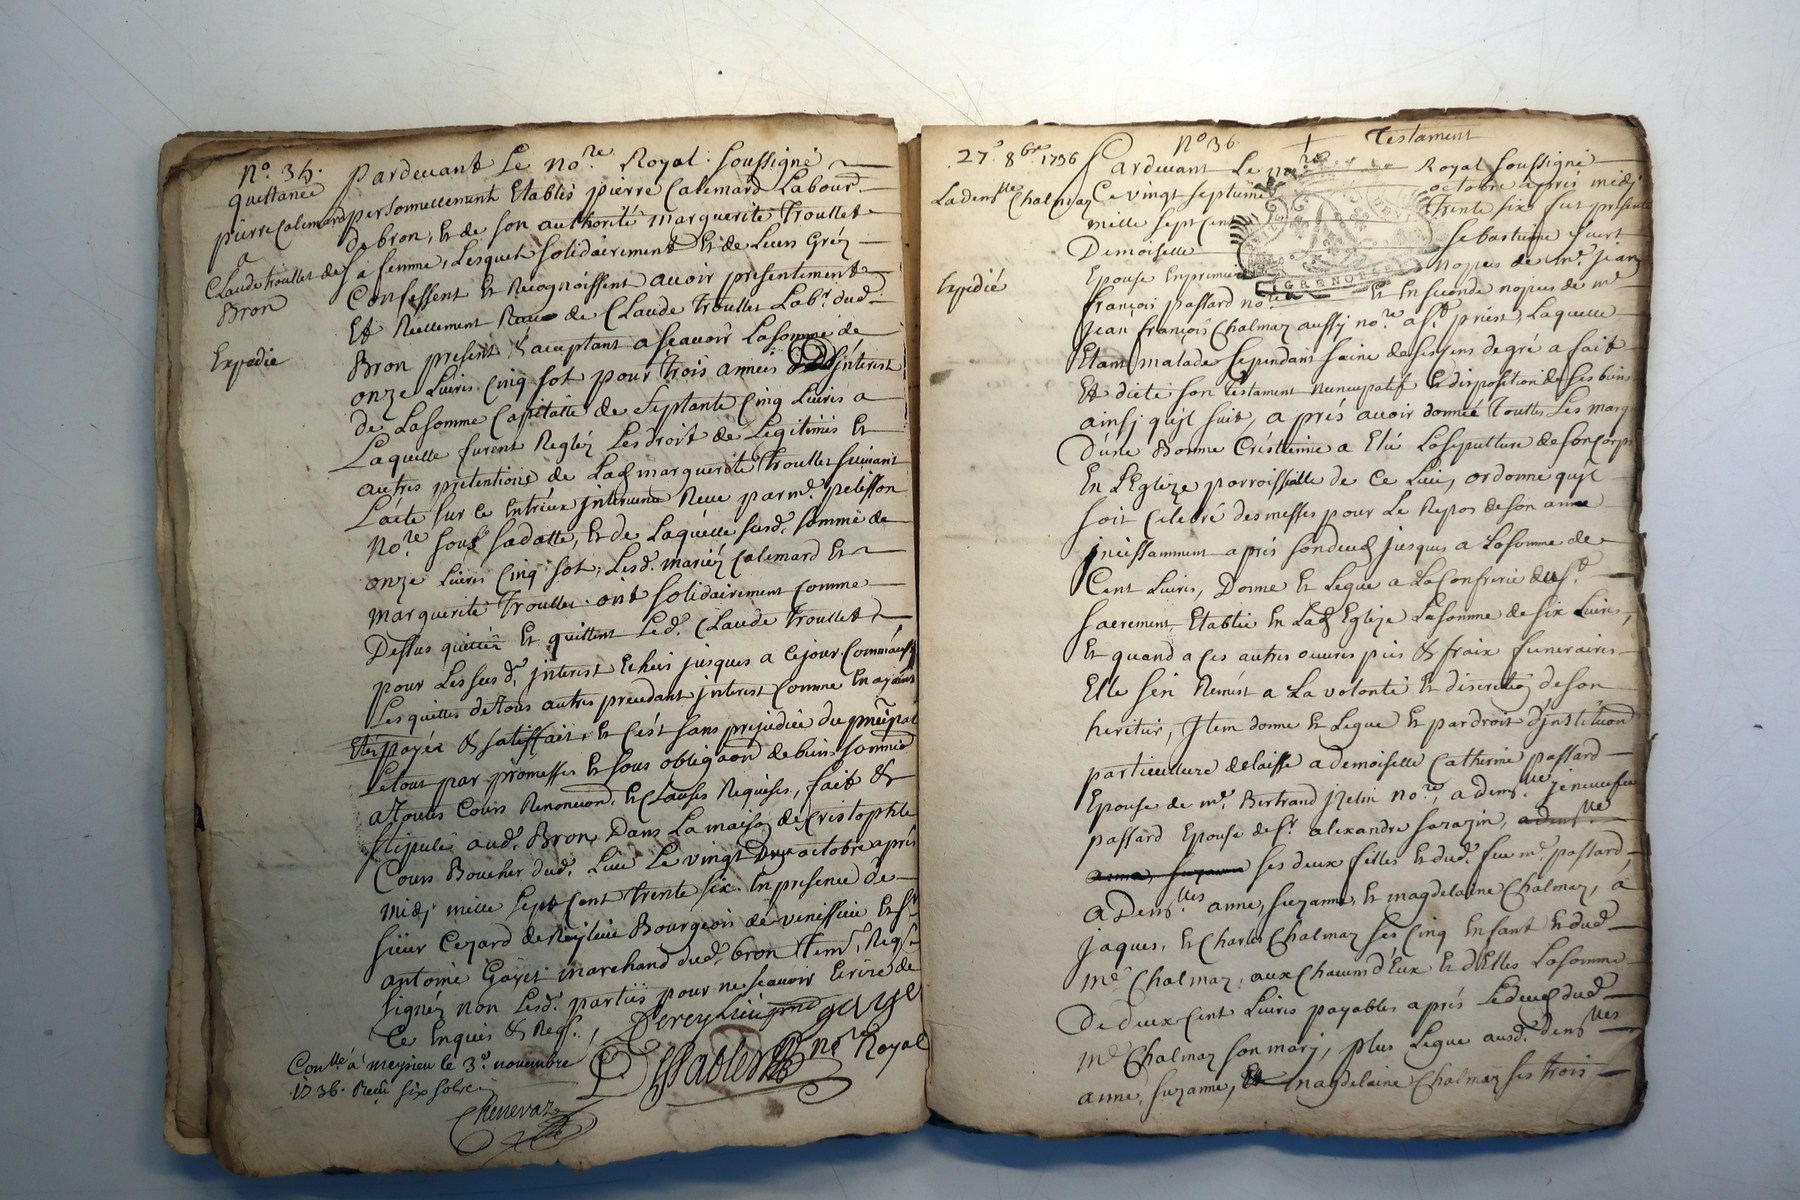 N.º 35.
quettance
pierre Calemard
a
Claude troullet de
Bron
Expedie
Pardevant Le no.re Royal soussigné
personnellement Etablis pierre Calemard Labour.
de bron, Et de son authorité marguerite Troullet
sa femme, Lesquels solidairement Et de Leurs Gréz
Confessent Et Recognoissent avoir presentement
Et Réellement Receu de Claude Troullet Lab.r dud.
Bron present & aceptant a sçeavoir La somme de
onze Livres Cinq sot pour trois années d'Jnterest
de La somme Capitalle de septante Cinq Livres a
Laquelle furentRegléz Les droit de Legitimes Et
autres pretentions de Lad marguerite Troullet suivant
L'acte sur ce Entreux jntervenu Receu par m.e pelisson
No.re sous sa datte, Et de Laquelle susd. somme de
onze Livres Cinq sot, Lesd. mariéz Calemard Et
marguerite Trouller ont solidairement Comme
Dessus quitté Et quittent Led. Claude Troullet
pour Les susd. jnterest Echeus jusques a Cejour. Comm'aussy
Les quittes de tous autres precedant jnterest Comme En ayant
Eté payéz & satiffait, Et C'ést sans prejudice du prncipal
Le tout par promesses Et sous obligaon de biens soumis
a toutes Cours Renonciaon. Et Clauses Requises, fait &
stipulé aud. Bron Dans La maison de Cristophle
Cours Boucher dud. Lieu Le vingt octobre aprés
midj mille sept Cent Trente six. En presence de
sieur Cezard de Reylieu Bourgeois de venissieu Et s.r
antoine Gayet marchand dud. bron tem. Reqs.
signéz non Lesd. parties pour ne sçeavoir Ecrire de
Ce Enquis & Reqs.
Dereylieu gayet
Dessables no.re Royal
Con.llé á meyzieu le 3.e novembre
1736. Receu six sols
Chenevaz
27.e 8.bre 1736
N.º 36 + Testament
La dem.lle Chalmaz
Expedié
Pardevant Le no.re Royal soussigné
Ce vingt septieme octobre aprés midj
mille sept Cent trente six fut presente
Demoiselle sebastienne
Epouse En premieres nopces de m.e Jean
GRENOBLE
françois passard no.re Et En seconde nopces de m.e
Jean françois Chalmaz aussy no.re a s.t priest, Laquelle
Etant malade Cependant saine de ses sens de gré a fait
Et dicté son testament nuncupatif Et disposition de ses biens
ainsj qu'jl suit, a prés avoir donné Touttes Les marq
D'une Bonne Crestienne a Elú La sepulture de son Corps
En L'Eglize parroissialle de Ce Lieu, ordonne qu'jl
soit Celebré des messes pour Le Repos de son ame
jncessamment aprés son decés jusques a La somme de
Cent Livres, Donne Et Legue a La Confrerie du s.t
sacrement Etablie En Lad Eglize La somme de six Livres,
Et quand a Ces autres ouvres pies & fraix funeraires
Elle s'en Remést a La volonté Et discretion de son
heritier, Jtem donne Et Legue Et par droit d'jnstitution
particulliere delaisse a demoiselle Catherine passard
Epouse de m.e Bertrand no.re, a dem.lle jeneviefve
passard Epouse de s.r alexandre sarazin, a dem.lles
anne, suzanne ses deux filles Et dud. feu m.e passard,
a Dem.lles anne, suzanne, Et magdelaine Chalmaz, a
jaques, Et Charles Chalmaz ses Cinq Enfant Et dud
m.e Chalmaz, aux Chacun d'Eux Et d'Elles La somme
De deux Cent Livres payables a prés Le decés dud
m.e Chalmaz son marj, plus Legue ausd. dem.lles
anne, suzanne, Et magdelaine Chalmaz ses trois